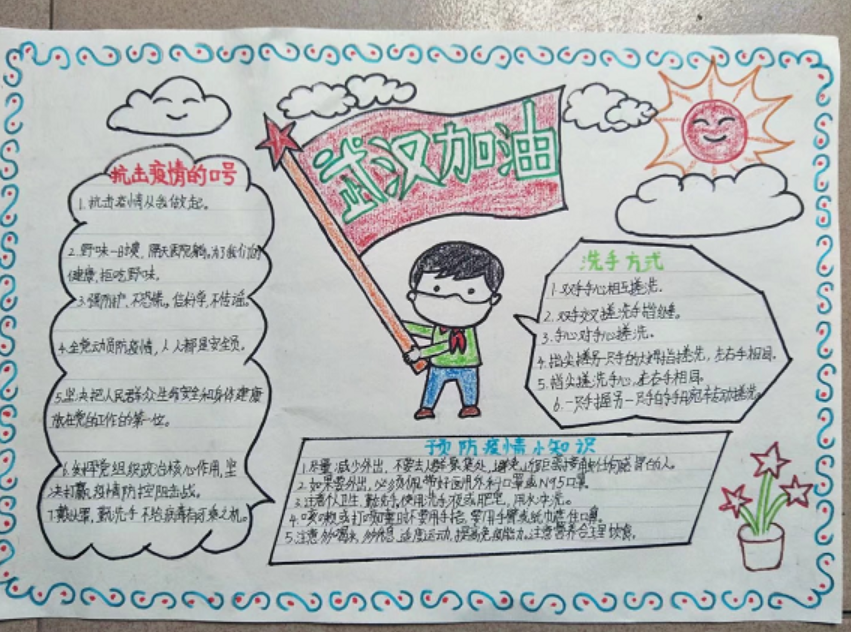 武汉加油
抗击疫情的口号
1.抗击疫情从我做起。
2.野味一时爽,隔天医院躺。为了我们的
健康,拒吃野味。
3.强防护,不恐慌。信科学,不传谣。
4.全党动员防疫情,人人都是安全员。
5.坚决把人民群众生命安全和身体健康
放在党的工作的第一位。
6.发挥党组织政治核心作用,坚
决打赢疫情防控阻击战。
7.戴口罩,勤洗手不给病毒有可乘之机。
洗手方式
1.双手手心相互搓洗。
2.双手交叉搓洗手指缝。
3.手心对手心搓洗。
4.指尖搓另一只手的大拇指搓洗,左右手相同。
5.指尖搓洗手心,左右手相同。
6.一只手握另一只手的手腕转动搓洗。
预防疫情小知识
1.尽量减少外出,不要去人群聚集处,避免近距离接触任何感冒的人。
2.如果要外出,必须佩带好医用外科口罩或N95口罩。
3.注意个人卫生,勤洗手,使用洗手液或肥皂,用水冲洗。
4.咳嗽或打喷嚏时不要用手捂,要用手臂或纸巾遮住口鼻。
5.注意多喝水,多休息,适度运动,提高免疫能力。注意营养合理饮食。